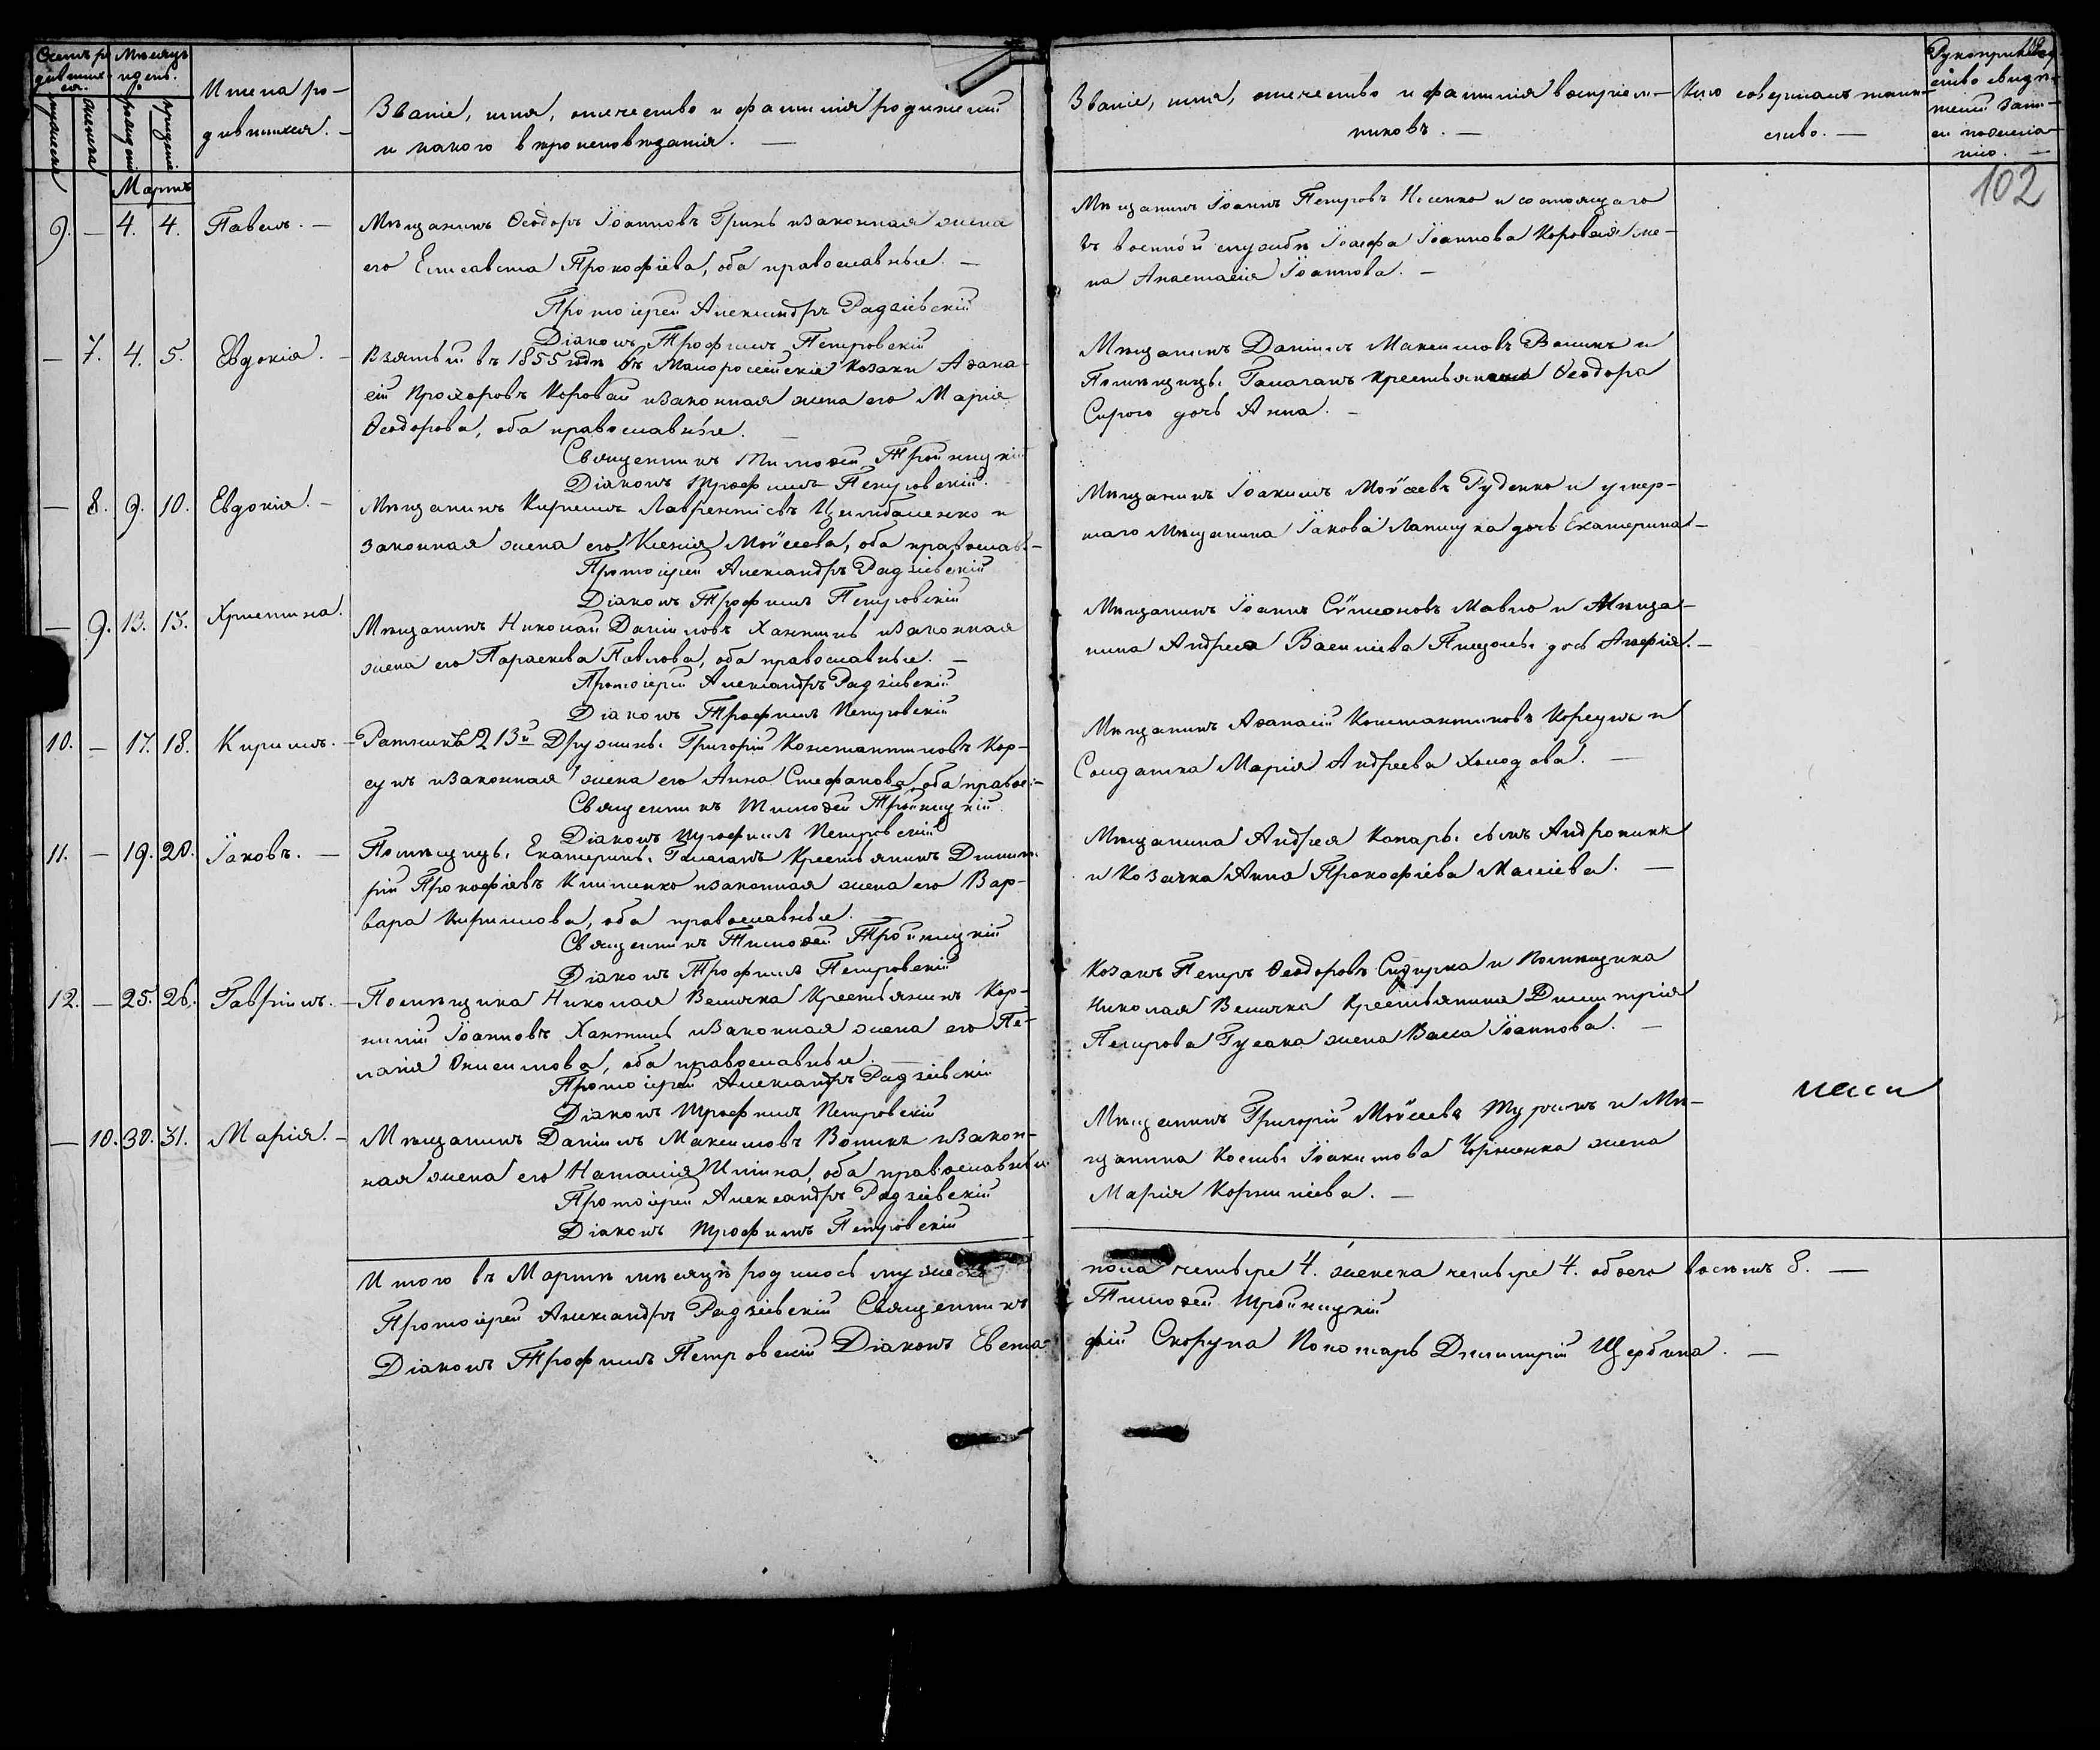 Счетъ ро-
дивших-
ся.
Мѣсяцъ
и день.
мужеска
женска
рожденія
крещенія
Имена ро-
дившихся. —
Званіе, имя, отчество и фамилія родителей
и какого вѣроисповѣданія. —
Званіе, имя, отчество и фамилія воспріем-
никовъ. —
Кто совершалъ таин-
ство. —
Рукоприклад-
ство свидѣ-
телей запи-
си по желанію. —
102
Мартъ
9. — 4. 4. Павелъ. —
Мѣщанинъ Ѳеодоръ Іоанновъ Гринь и законная жена
его Елисавета Прокофіева, оба православные. —
Протоіерей Александръ Радзіевскій
Діаконъ Трофимъ Петровскій
Мѣщанинъ Іоаннъ Петровъ Носенко и состоящаго
въ военной службѣ Іосифа Іоаннова Коровая же-
на Анастасія Іоаннова. —
— 7. 4. 5. Евдокія. —
Взятый въ 1855 годѣ въ Малоросейскіе Козаки Аѳана-
сій Прохоровъ Коровай и законная жена его Марія
Ѳеодорова, оба православные. —
Священникъ Тимоѳей Тройницкій
Діаконъ Трофимъ Петровскій.
Мѣщанинъ Даніилъ Максимовъ Воликъ и
Помѣщицы Галаганъ крестьянина Ѳеодора
Сирого дочь Анна. —
— 8. 9. 10. Евдокія. —
Мѣщанинъ Кирилъ Лаврентіевъ Цымбаленко и
законная жена его Ксенія Моѵсеева, оба православ-
Протоіерей Александръ Радзіевскій
Діаконъ Трофимъ Петровскій
Мѣщанинъ Іоакимъ Моѵсеевъ Руденко и умер-
шаго Мѣщанина Іакова Лапшука дочь Екатерина —
— 9. 13. 13. Христина.
Мѣщанинъ Николай Даніиловъ Ханжинъ и законная
жена его Параскева Павлова, оба православные. —
Протоіерей Александръ Радзіевскій
Діаконъ Трофимъ Петровскій
Мѣщанинъ Іоаннъ Сѵмеоновъ Мавло и Мѣща-
нина Андрея Василіева Пищолы дочь Агафія. —
10. — 17. 18. Кирилъ. —
Ратникъ 213й Дружины Григорій Константиновъ Кор-
сунъ и законная жена его Анна Стефанова, оба правос: —
Священникъ Тимоѳей Тройницкій
Діаконъ Трофимъ Петровскій
Мѣщанинъ Аѳанасій Константиновъ Корсунъ и
Солдатка Марія Андреева Холодова. —
11. — 19. 20. Іаковъ. —
Помѣщицы Екатерины Галаганъ Крестьянинъ Дмит-
рій Прокофіевъ Клименко и законная жена его Вар-
вара Кириллова, оба православные.
Священникъ Тимоѳей Тройницкій
Діаконъ Трофимъ Петровскій
Мѣщанина Андрея Копары сынъ Андроникъ
и Козачка Анна Прокофіева Малѣева. —
12. — 25. 26. Гавріилъ. —
Помѣщика Николая Велички Крестьянинъ Кор-
нилій Іоанновъ Ханжинъ и законная жена его Пе-
лагія Онисимова, оба православные. —
Протоіерей Александръ Радзіевскій
Діаконъ Трофимъ Петровскій
Козакъ Петръ Ѳеодоровъ Сидирка и Помѣщика
Николая Велички Крестьянина Дмитрія
Петрова Гусака жена Васса Іоаннова. —
— 10. 30. 31. Марія. —
Мѣщанинъ Даніилъ Максимовъ Воликъ и закон-
ная жена его Наталія Иліина, оба православные
Протоіерей Александръ Радзіевскій
Діаконъ Трофимъ Петровскій
Мѣщанинъ Григорій Моѵсеевъ Турчинъ и Мѣ-
щанина Косьмы Іоакимова Чорненка жена
Марія Корниліева. —
Итого въ Мартѣ мѣсяцѣ родилось мужеска
пола четыре 4. женска четыре 4. обоего восемь 8. —
Протоіерей Александръ Радзіевскій Священникъ
Тимоѳей Тройницкій
Діаконъ Трофимъ Петровскій Діаконъ Евста-
фій Скорупа Пономарь Димитрій Щербина. —